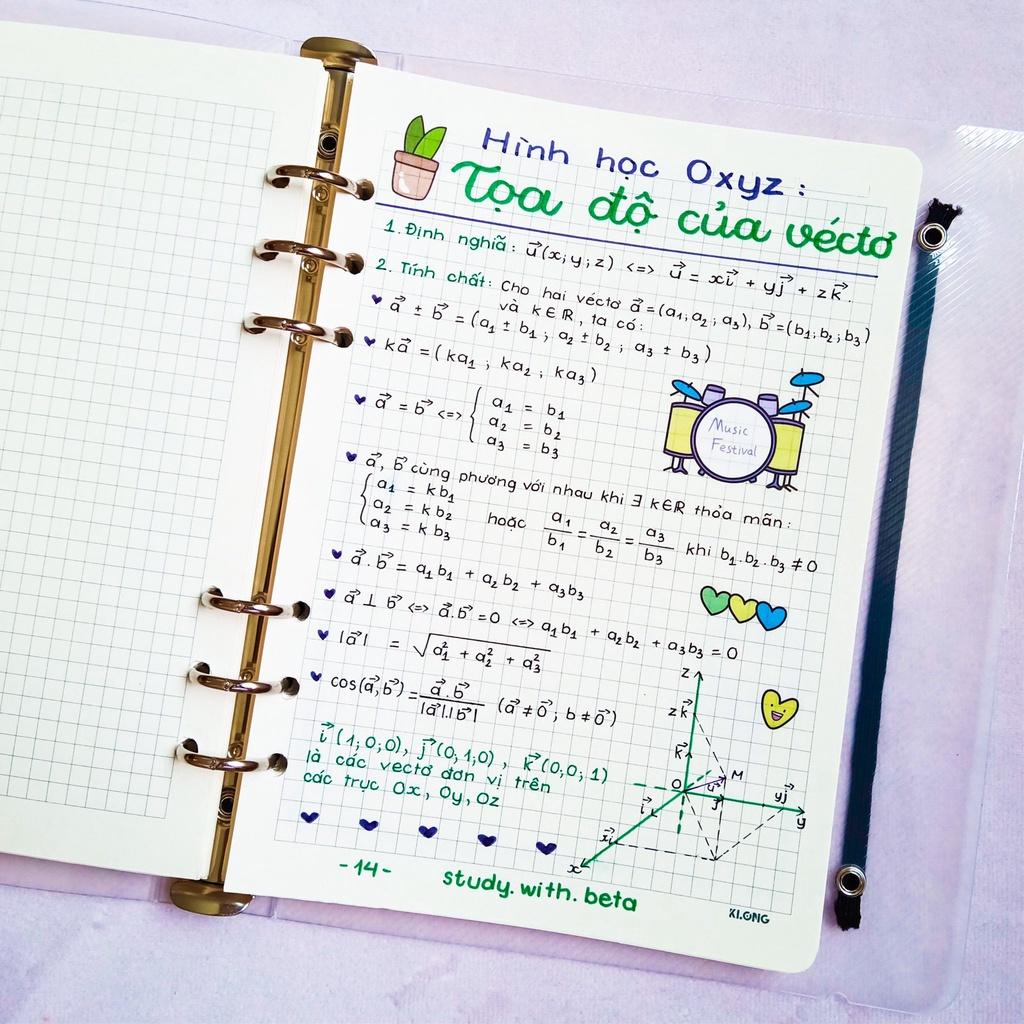 Hình học Oxyz:
Tọa độ của véctơ
1. Định nghiã: u⃗(x; y; z) <=> u⃗ = xi⃗ + yj⃗ + zk⃗.
2. Tính chất: Cho hai véctơ a⃗ = (a₁; a₂; a₃), b⃗ = (b₁; b₂; b₃)
và k ∈ ℝ, ta có:
a⃗ ± b⃗ = (a₁ ± b₁; a₂ ± b₂; a₃ ± b₃)
ka⃗ = (ka₁; ka₂; ka₃)
a⃗ = b⃗ <=> { a₁ = b₁
a₂ = b₂
a₃ = b₃
Music
Festival
a⃗, b⃗ cùng phương với nhau khi ∃ k∈ℝ thỏa mãn:
{ a₁ = kb₁
a₂ = kb₂
a₃ = kb₃
hoặc a₁/b₁ = a₂/b₂ = a₃/b₃ khi b₁.b₂.b₃ ≠ 0
a⃗.b⃗ = a₁b₁ + a₂b₂ + a₃b₃
a⃗ ⊥ b⃗ <=> a⃗.b⃗ = 0 <=> a₁b₁ + a₂b₂ + a₃b₃ = 0
|a⃗| = √(a₁² + a₂² + a₃²)
cos(a⃗, b⃗) = a⃗.b⃗/|a⃗|.|b⃗| (a⃗ ≠ 0⃗; b ≠ 0⃗)
i⃗(1; 0; 0), j⃗(0; 1; 0), k⃗(0; 0; 1)
là các vectơ đơn vị trên
các trục Ox, Oy, Oz
z
zk⃗
k⃗
M
O
u⃗
j⃗
yj⃗
y
i⃗
xi⃗
x
-14-
study.with.beta
KLONG